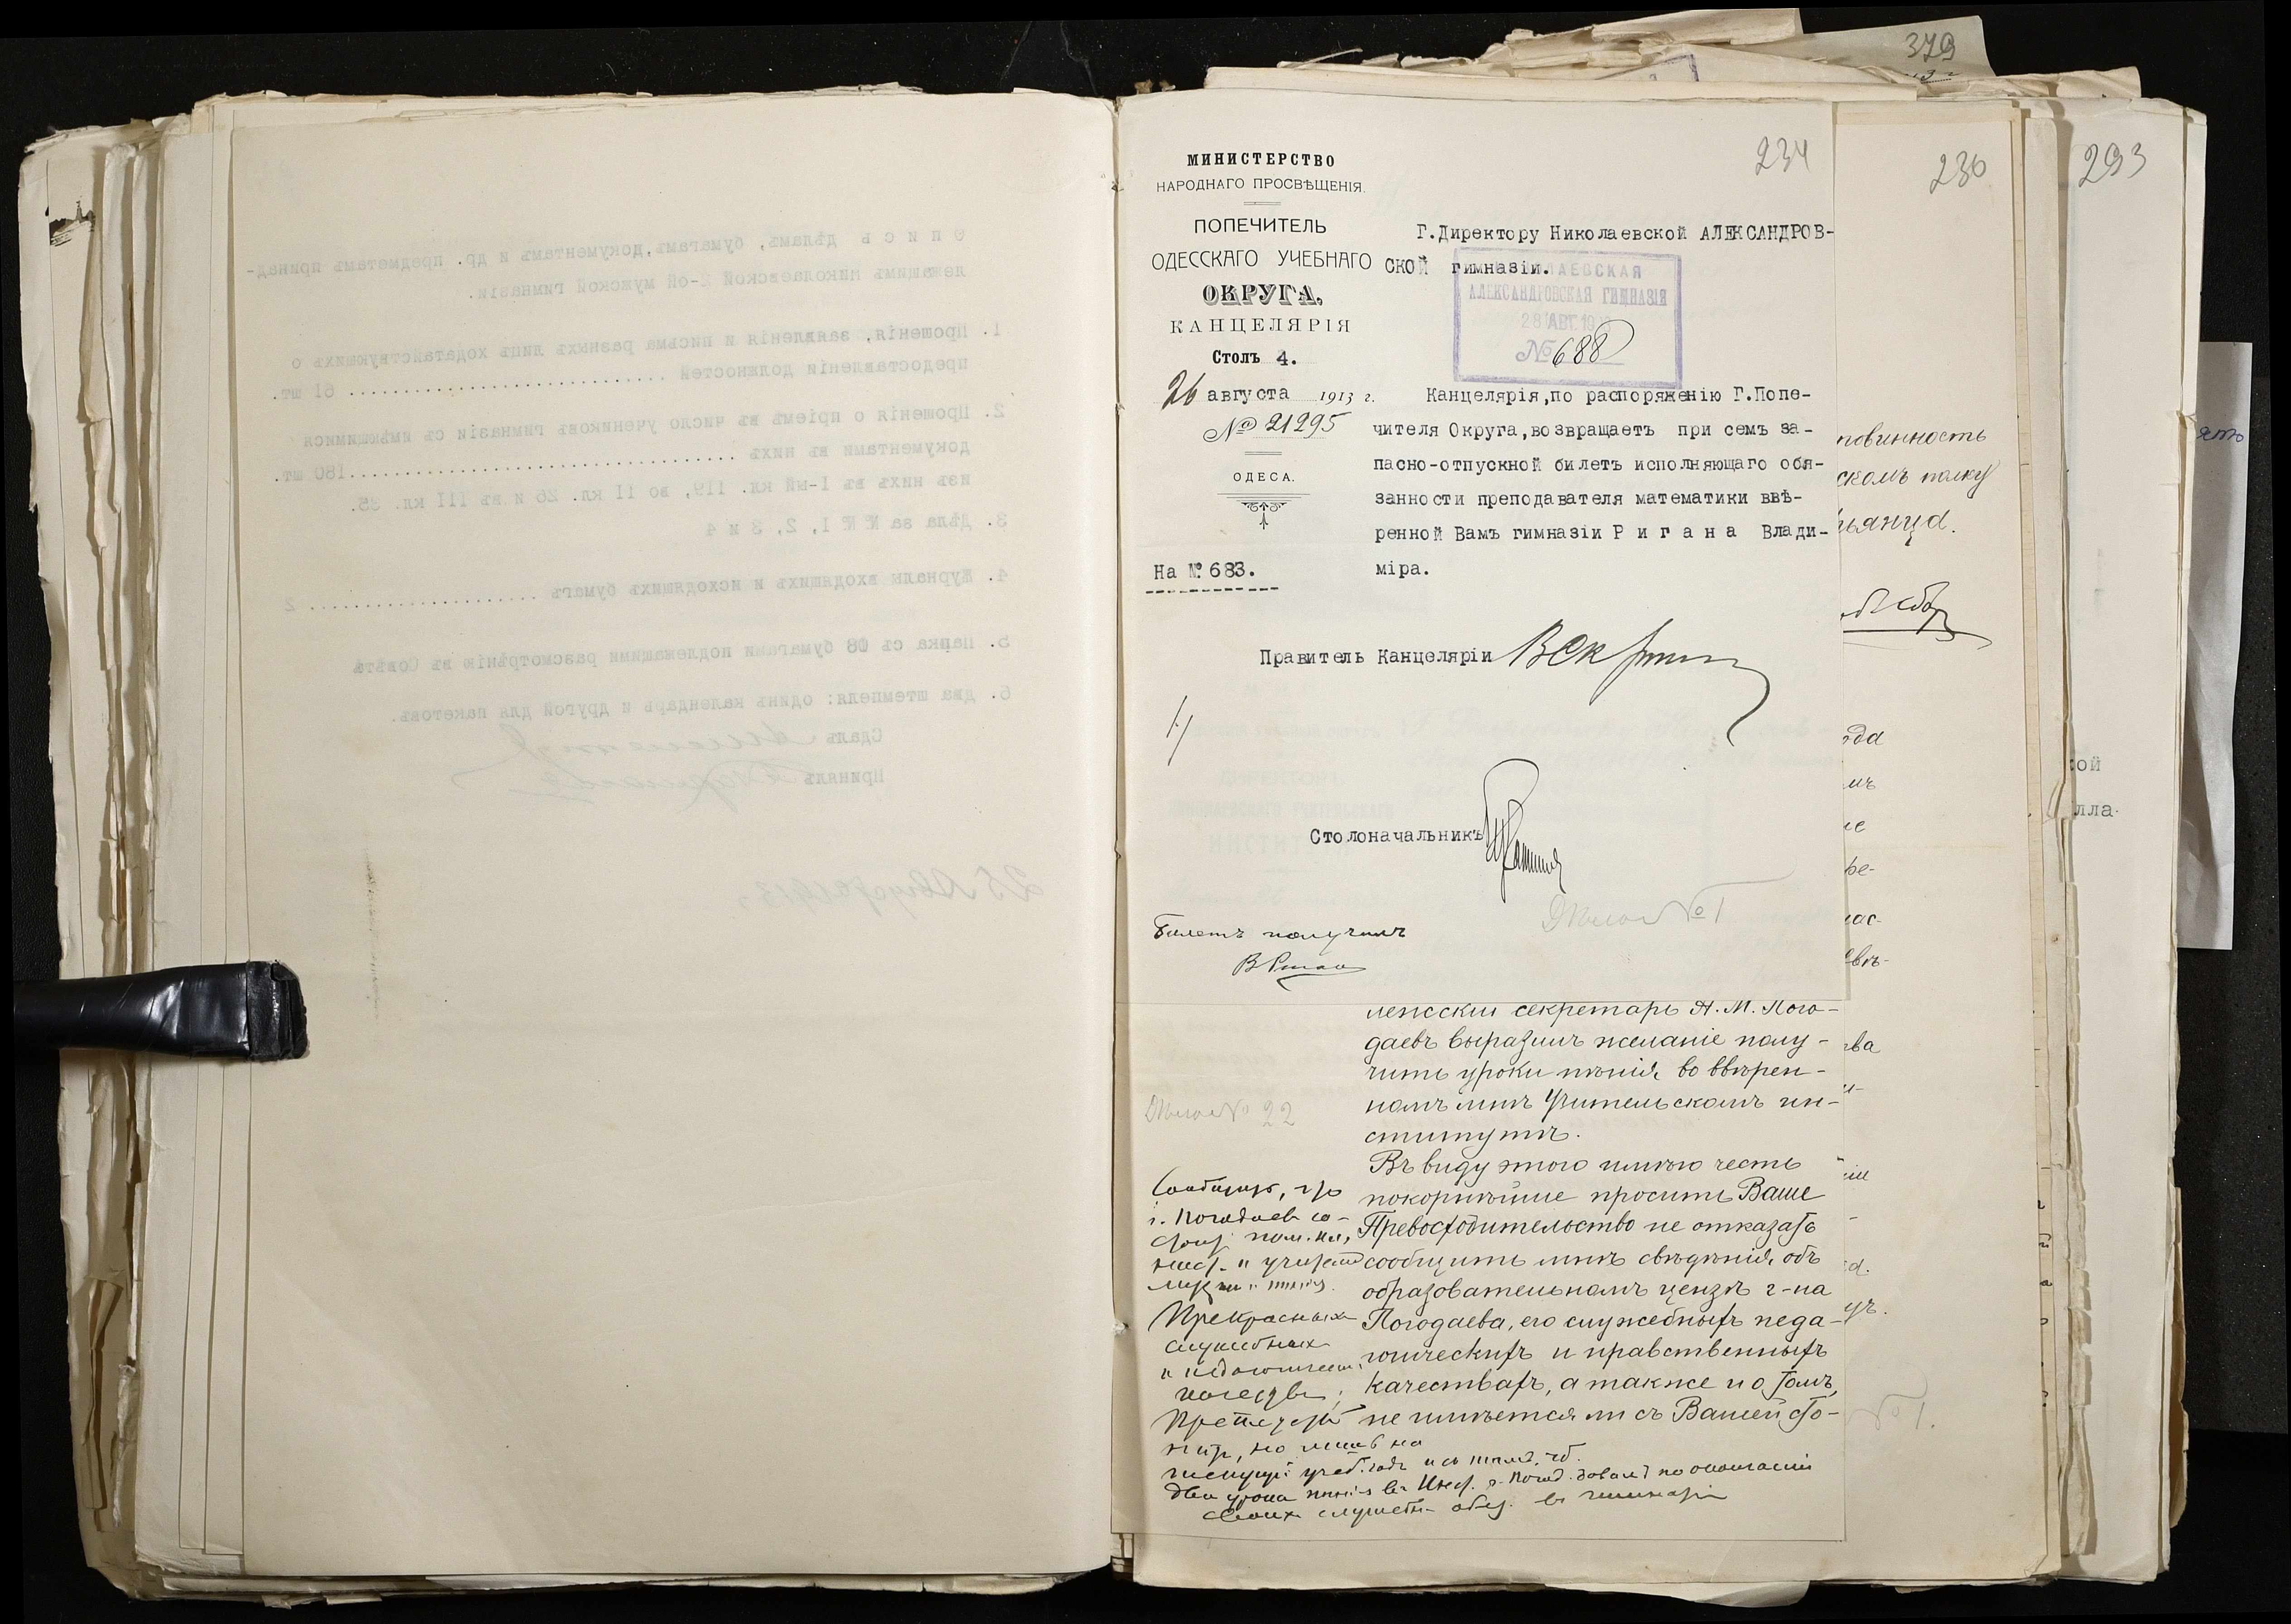 379
234
230
293
МИНИСТЕРСТВО
НАРОДНАГО ПРОСВѢЩЕНІЯ.
ПОПЕЧИТЕЛЬ
ОДЕССКАГО УЧЕБНАГО
ОКРУГА,
КАНЦЕЛЯРІЯ
Столъ 4.
26 августа 1913 г.
№ 21295
ОДЕСА.
На № 683.
Г.Директору Николаевской АЛЕКСАНДРОВ-
СКОЙ гимназіи.
НИКОЛАЕВСКАЯ
АЛЕКСАНДРОВСКАЯ ГИМНАЗІЯ
28 АВГ. 1913
№ 688
Канцелярія,по распоряженію Г.Попе-
чителя Округа,возвращаетъ при семъ за-
пасно-отпускной билетъ исполняющаго обя-
занности преподавателя математики ввѣ-
ренной Вамъ гимназіи Р и г а н а Влади-
міра.
Правитель Канцеляріи
Столоначальникъ
Дѣло № 1
Билетъ получилъ
В Риган
лежскій секретарь А. М. Пого-
даевъ выразилъ желаніе полу-
чить уроки пѣнія во ввѣрен-
номъ мнѣ Учительскомъ ин-
ститутѣ.
Въ виду этого имѣю честь
покорнѣйше просить Ваше
Превосходительство не отказать
сообщить мнѣ свѣдѣнія объ
образовательномъ цензѣ г-на
Погодаева, его служебныхъ педа-
гогическихъ и нравственныхъ
качествахъ, а также и о томъ,
не имѣется ли съ Вашей сто-
Дѣло № 22
Сообщить, что
г. Погодаев со-
стоит пом. кл.
наст. и учител
Прекрасных
служебных
и педагогическ.
качеств;
Препятств
нѣтъ, но лишь на
текущій учеб. годъ и съ тѣмъ, чтоб.
два урока пѣнія въ Инст. г. Погод. давалъ по окончаніи
своих служебн. обяз. въ гимназіи
повинность
скомъ полку
ьянца.
ода
мъ
ре-
ва
№ 1.
ой
лла-
О п и с ь дѣламъ, бумагамъ,документамъ и др. предметамъ принад-
лежащимъ Николаевской 2-ой мужской гимназіи.
1. Прошенія, заявленія и письма разныхъ лицъ ходатайствующихъ о
предоставленіи должностей .............................. 61 шт.
2. Прошенія о пріемѣ въ число учениковъ гимназіи съ имѣющимися
документами въ нихъ ..................................180 шт.
изъ нихъ въ I-ый кл. 119, во II кл. 26 и въ III кл. 35.
3. Дѣла за №№ 1, 2, 3 и 4
4. Журналы входящихъ и исходящихъ бумагъ ..................... 2
5. Папка съ бумагами подлежащими разсмотрѣнію въ Совѣтѣ
6. Два штемпеля: одинъ календарь и другой для пакетовъ.
Сдалъ
Принялъ
25 Августа 1913 г.